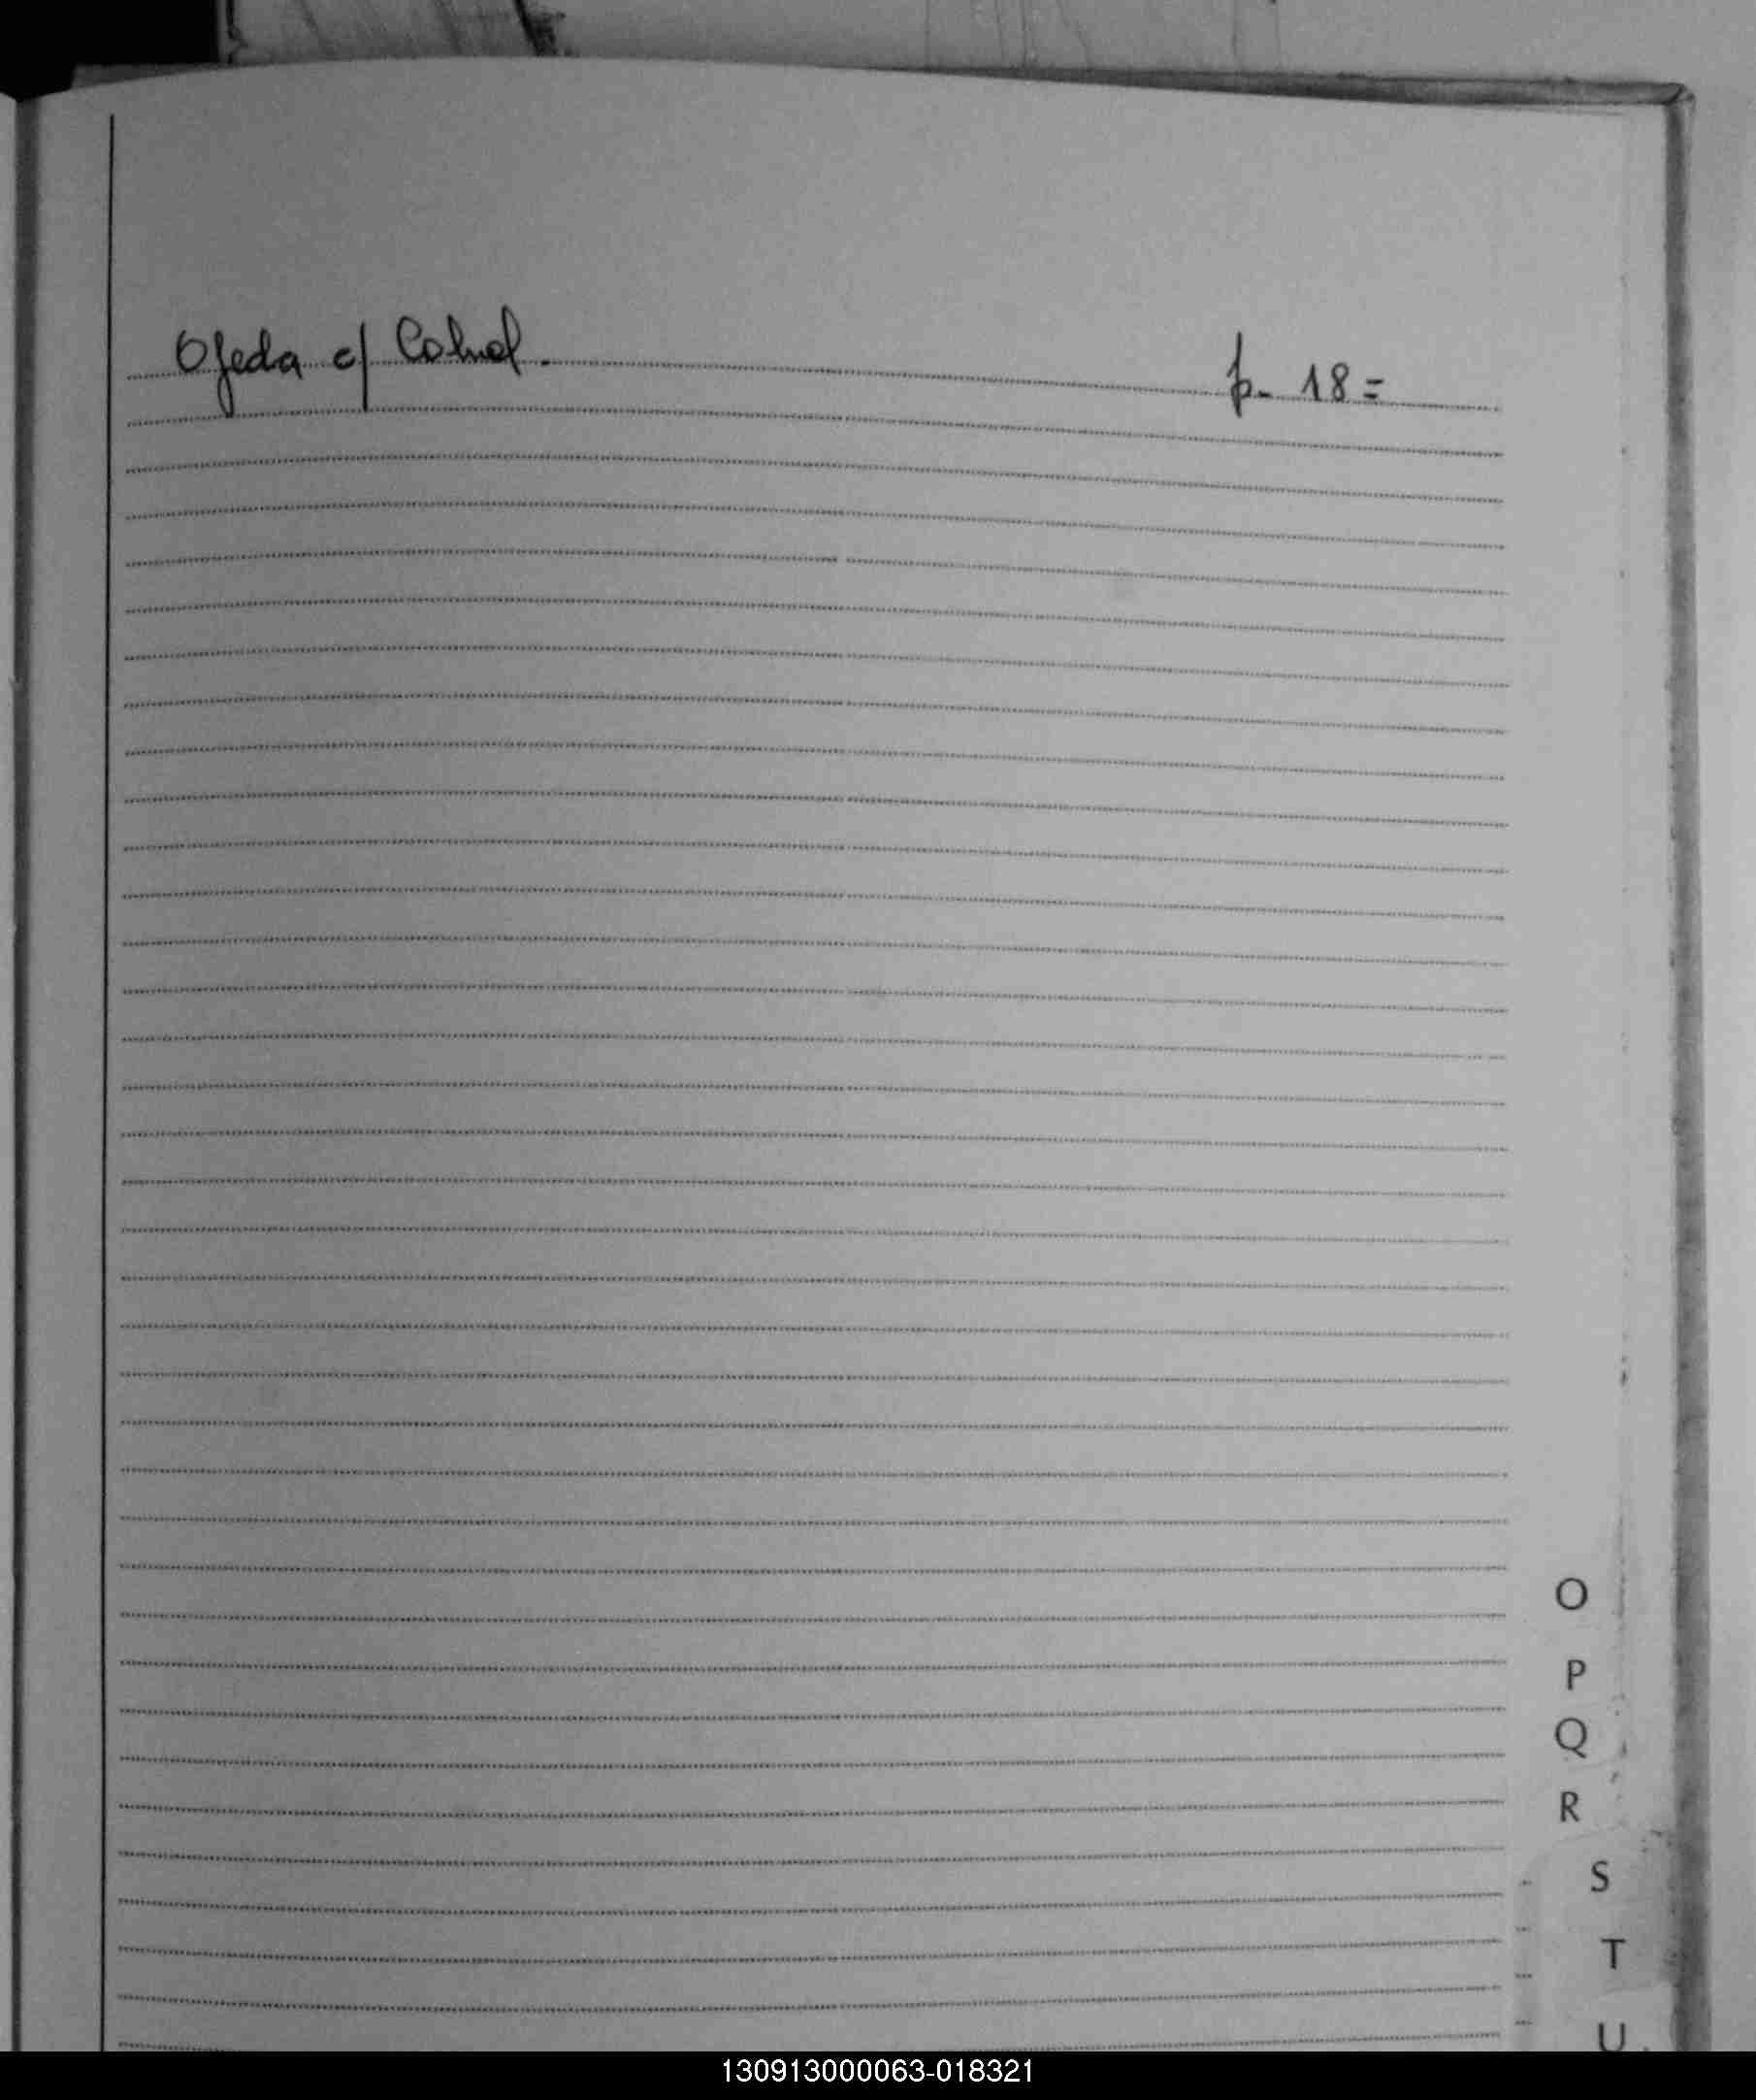 Ojeda c/ Cabral. p. 18=
O
P
Q
R
S
T
U
130913000063-018321